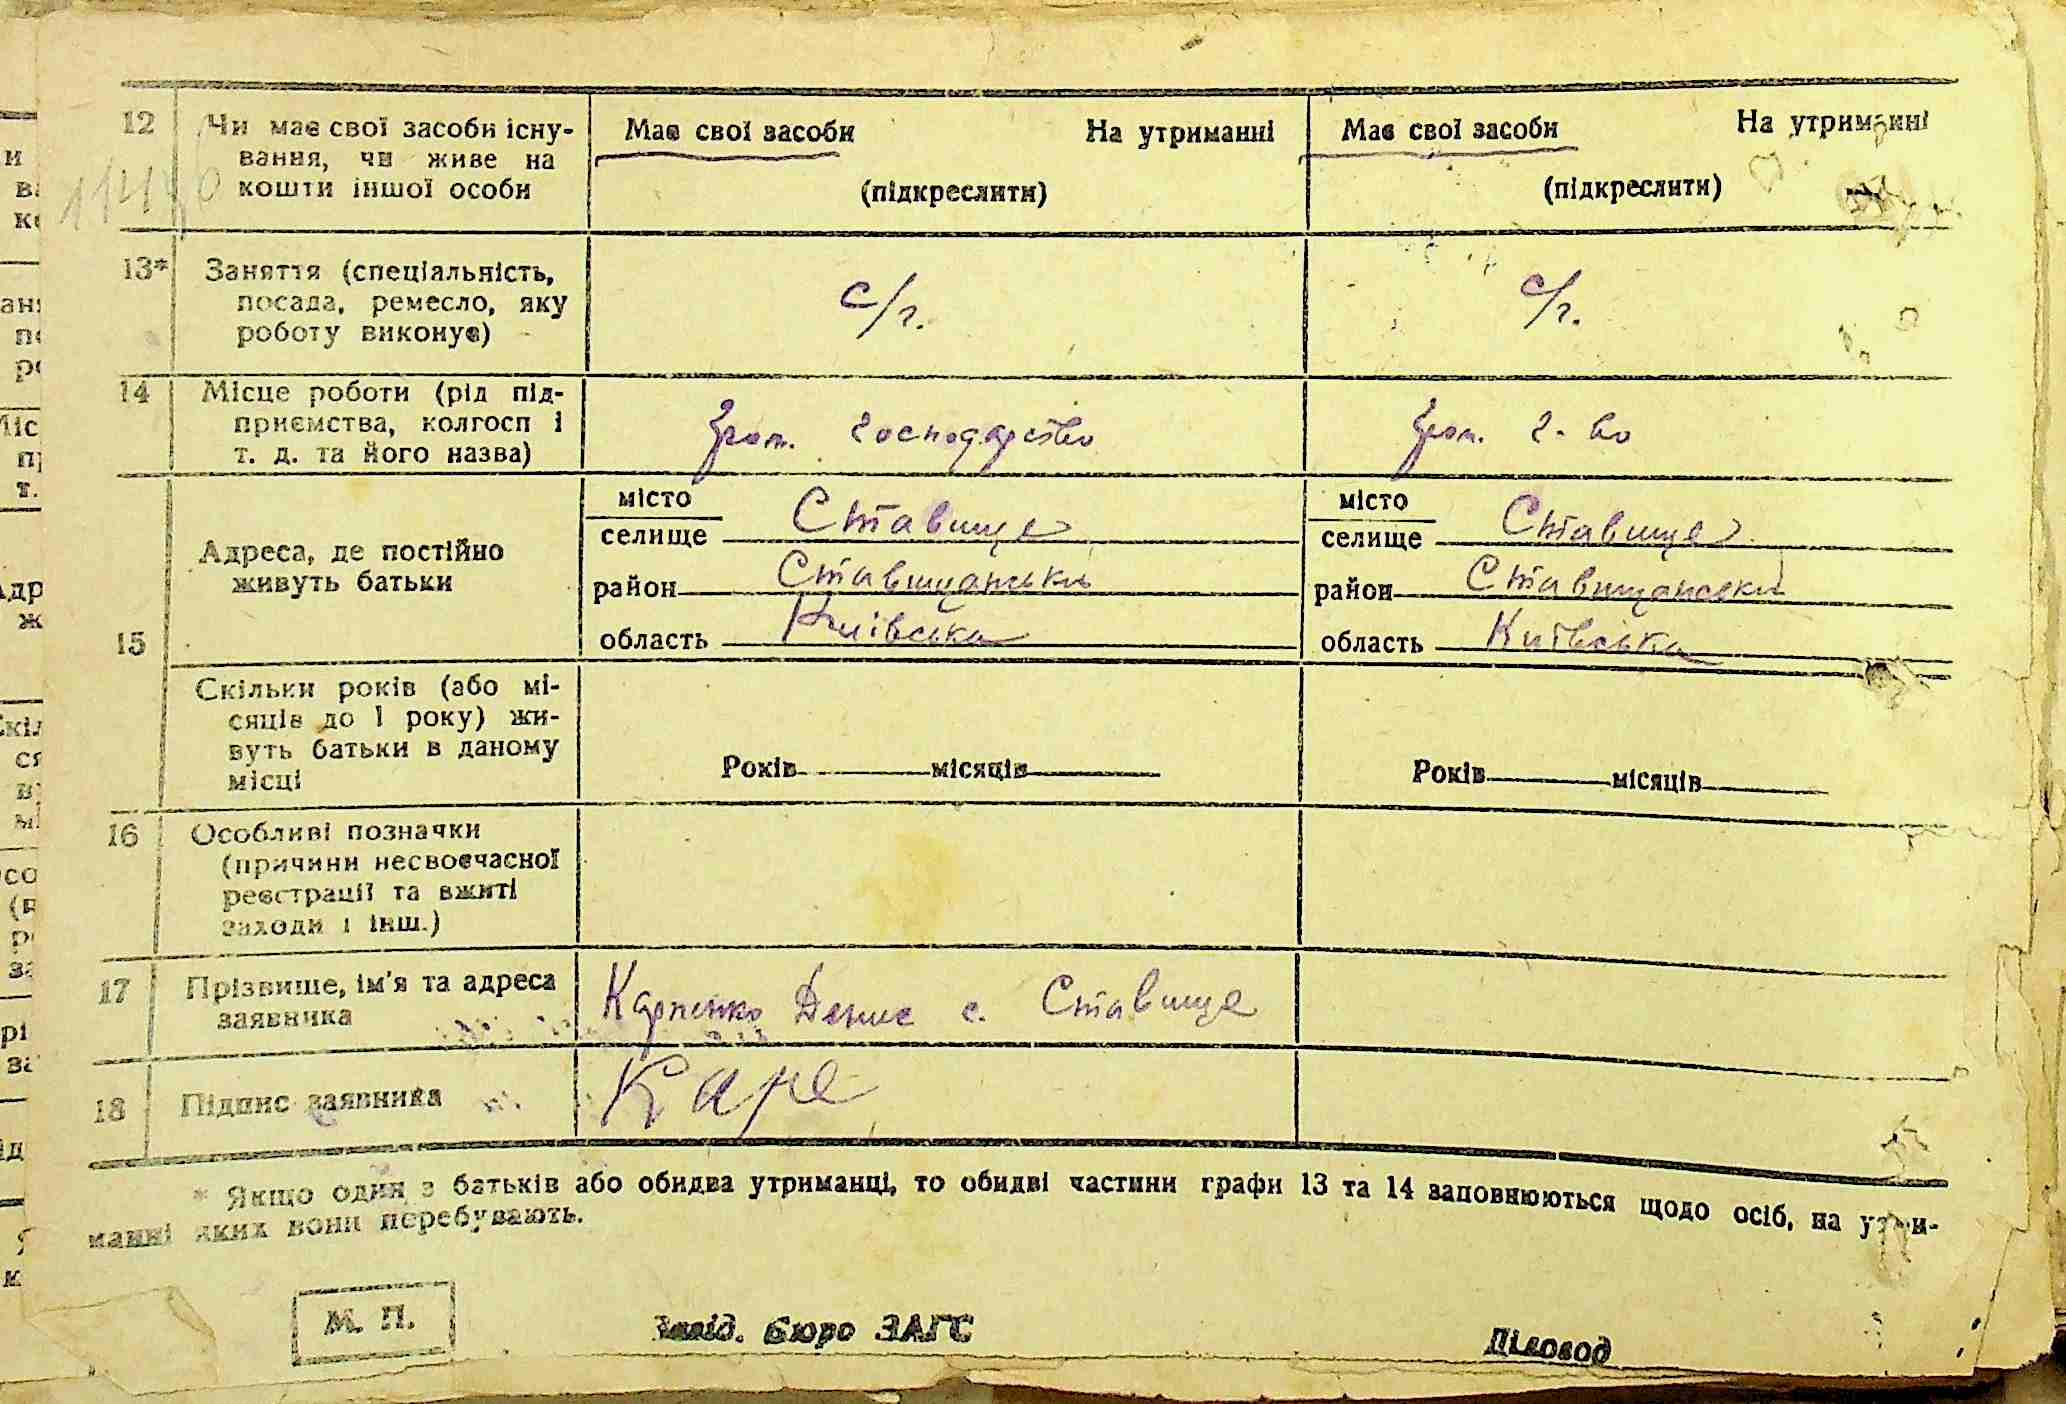 12 Чи має свої засоби існу- Має свої засоби На утриманні Має свої засоби На утриманні
вання, чи живе на
кошти іншої особи (підкреслити) (підкреслити)
13* Заняття (спеціальність,
посада, ремесло, яку с/г. с/г.
роботу виконує)
14 Місце роботи (рід під-
приємства, колгосп і гром. господарство гром. г-во
т. д. та його назва)
місто місто
селище Ставище селище Ставище
15 Адреса, де постійно
живуть батьки район Ставищанськи район Ставищанськи
область Київська область Київська
Скільки років (або мі-
сяців до 1 року) жи-
вуть батьки в даному
місці Років місяців Років місяців
16 Особливі позначки
(причини несвоєчасної
реєстрації та вжиті
заходи і інш.)
17 Прізвище, ім'я та адреса Карпенко Денис с. Ставище
заявника
18 Підпис заявника Карп
* Якщо один з батьків або обидва утриманці, то обидві частини графи 13 та 14 заповнюються щодо осіб, на утри-
манні яких вони перебувають.
М. П. Завід. бюро ЗАГС Діловод